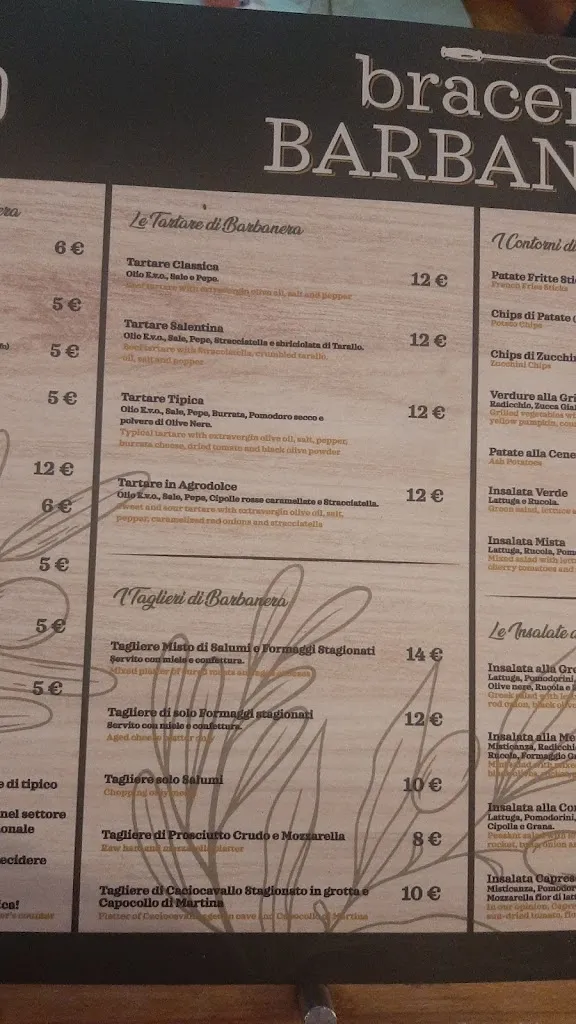 bracer
BARBAN
era
6 €
5 €
5 €
5 €
12 €
6 €
5 €
5 €
5 €
e di tipico
nel settore
onale
ecidere
ca!
er's counter
Le Tartare di Barbanera
Tartare Classica 12 €
Olio E.v.o., Sale e Pepe.
Beef tartare with extravergin olive oil, salt and pepper
Tartare Salentina 12 €
Olio E.v.o., Sale, Pepe, Stracciatella e sbriciolata di Tarallo.
Beef tartare with Stracciatella, crumbled tarallo,
oil, salt and pepper
Tartare Tipica 12 €
Olio E.v.o., Sale, Pepe, Burrata, Pomodoro secco e
polvere di Olive Nere.
Typical tartare with extravergin olive oil, salt, pepper,
burrata cheese, dried tomato and black olive powder
Tartare in Agrodolce 12 €
Olio E.v.o., Sale, Pepe, Cipolle rosse caramellate e Stracciatella.
Sweet and sour tartare with extravergin olive oil, salt,
pepper, caramelized red onions and stracciatella
I Taglieri di Barbanera
Tagliere Misto di Salumi e Formaggi Stagionati 14 €
Servito con miele e confettura.
Mixed platter of cured meats and
Tagliere di solo Formaggi stagionati 12 €
Servito con miele e confettura.
Aged cheese platter only
Tagliere solo Salumi 10 €
Chopping only meat
Tagliere di Prosciutto Crudo e Mozzarella 8 €
Raw ham and mozzarella platter
Tagliere di Caciocavallo Stagionato in grotta e 10 €
Capocollo di Martina
Platter of Caciocavallo in cave and Capocollo di Martina
I Contorni di
Patate Fritte Stic
French Fries Sticks
Chips di Patate
Potato Chips
Chips di Zucchin
Zucchini Chips
Verdure alla Gri
Radicchio, Zucca Gial
Grilled vegetables wi
yellow pumpkin,
Patate alla Cene
Ash Potatoes
Insalata Verde
Lattuga e Rucola.
Green salad, lettuce a
Insalata Mista
Lattuga, Rucola, Pom
Mixed salad with lett
cherry tomatoes and
Le Insalate d
Insalata alla Gre
Lattuga, Pomodorini,
Olive nere, Rucola e
Greek salad with let
red onion, black oliv
Insalata alla Me
Misticanza, Radicchi
Rucola, Formaggio Gr
Insalata alla Con
Lattuga, Pomodorini,
Cipolla e Grana.
Peasant salad with le
rocket, tuna, onion a
Insalata Caprese
Misticanza, Pomodor
Mozzarella fior di latt
In our opinion, Capre
sun-dried tomato, fio